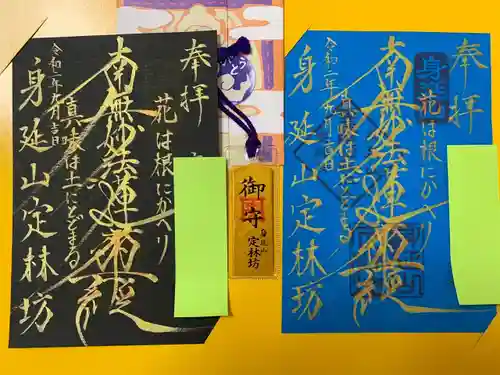 奉拝
花は根にかへり
南無妙法蓮華経
真味は土にとどまる
令和二年九月吉日
身延山定林坊
御守
身延山
定林坊
奉拝
身延
花は根にかへり
南無妙法蓮華経
真味は土にとどまる
令和二年九月吉日
身延山定林坊